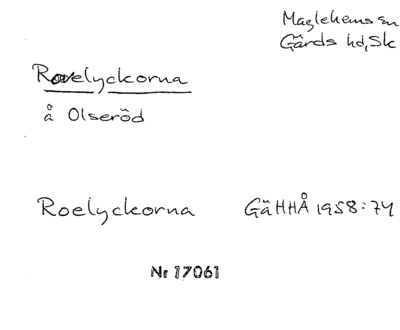 Maglehems sn
Gärds hd, Sk
Rovelyckorna
å Olseröd
Roelyckorna GäHHÅ 1958:74
Nr 17061